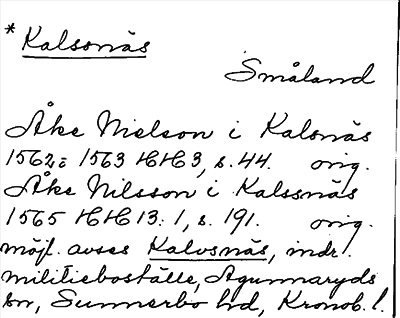 * Kalsonäs
Småland
Åke Nielson i Kalsnäs
1562: 1563 HH 3, s. 44. orig.
Åke Nilsson i Kalssnäs
1565 HH 13:1, s. 191. orig.
möjl. avses Kalvsnäs, indr.
militieboställe, Agunnaryds
sn, Sunnerbo hd, Kronob. l.